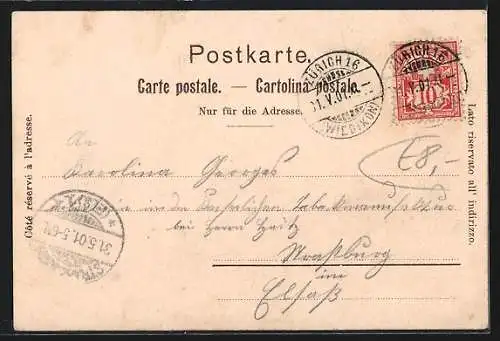 Postkarte.
Carte postale. — Cartolina postale.
Nur für die Adresse.
Côté réservé à l'adresse.
Lato riservato all' indirizzo.
ZÜRICH 16
(WIEDIKON)
ZÜRICH 16
10
€8,-
An
Karolina Georges
in der Kaiserlichen Tabakmanufaktur
bei Herrn
Straßburg
im
Elsaß
31.5.01.5-6N.